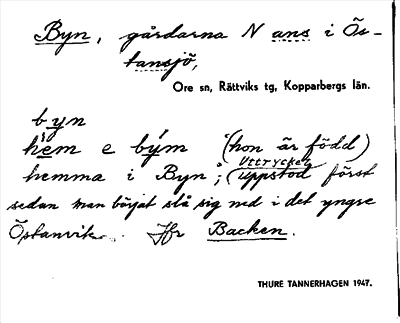 Byn, gårdarna N ans i Ös-
tansjö,
Ore sn, Rättviks tg, Kopparbergs län.
byn
hem e bým (hon är född)
hemma i Byn; (Uttrycket uppstod först
sedan man börjat slå sig ned i det yngre
Östanvik. Jfr Backen.
THURE TANNERHAGEN 1947.